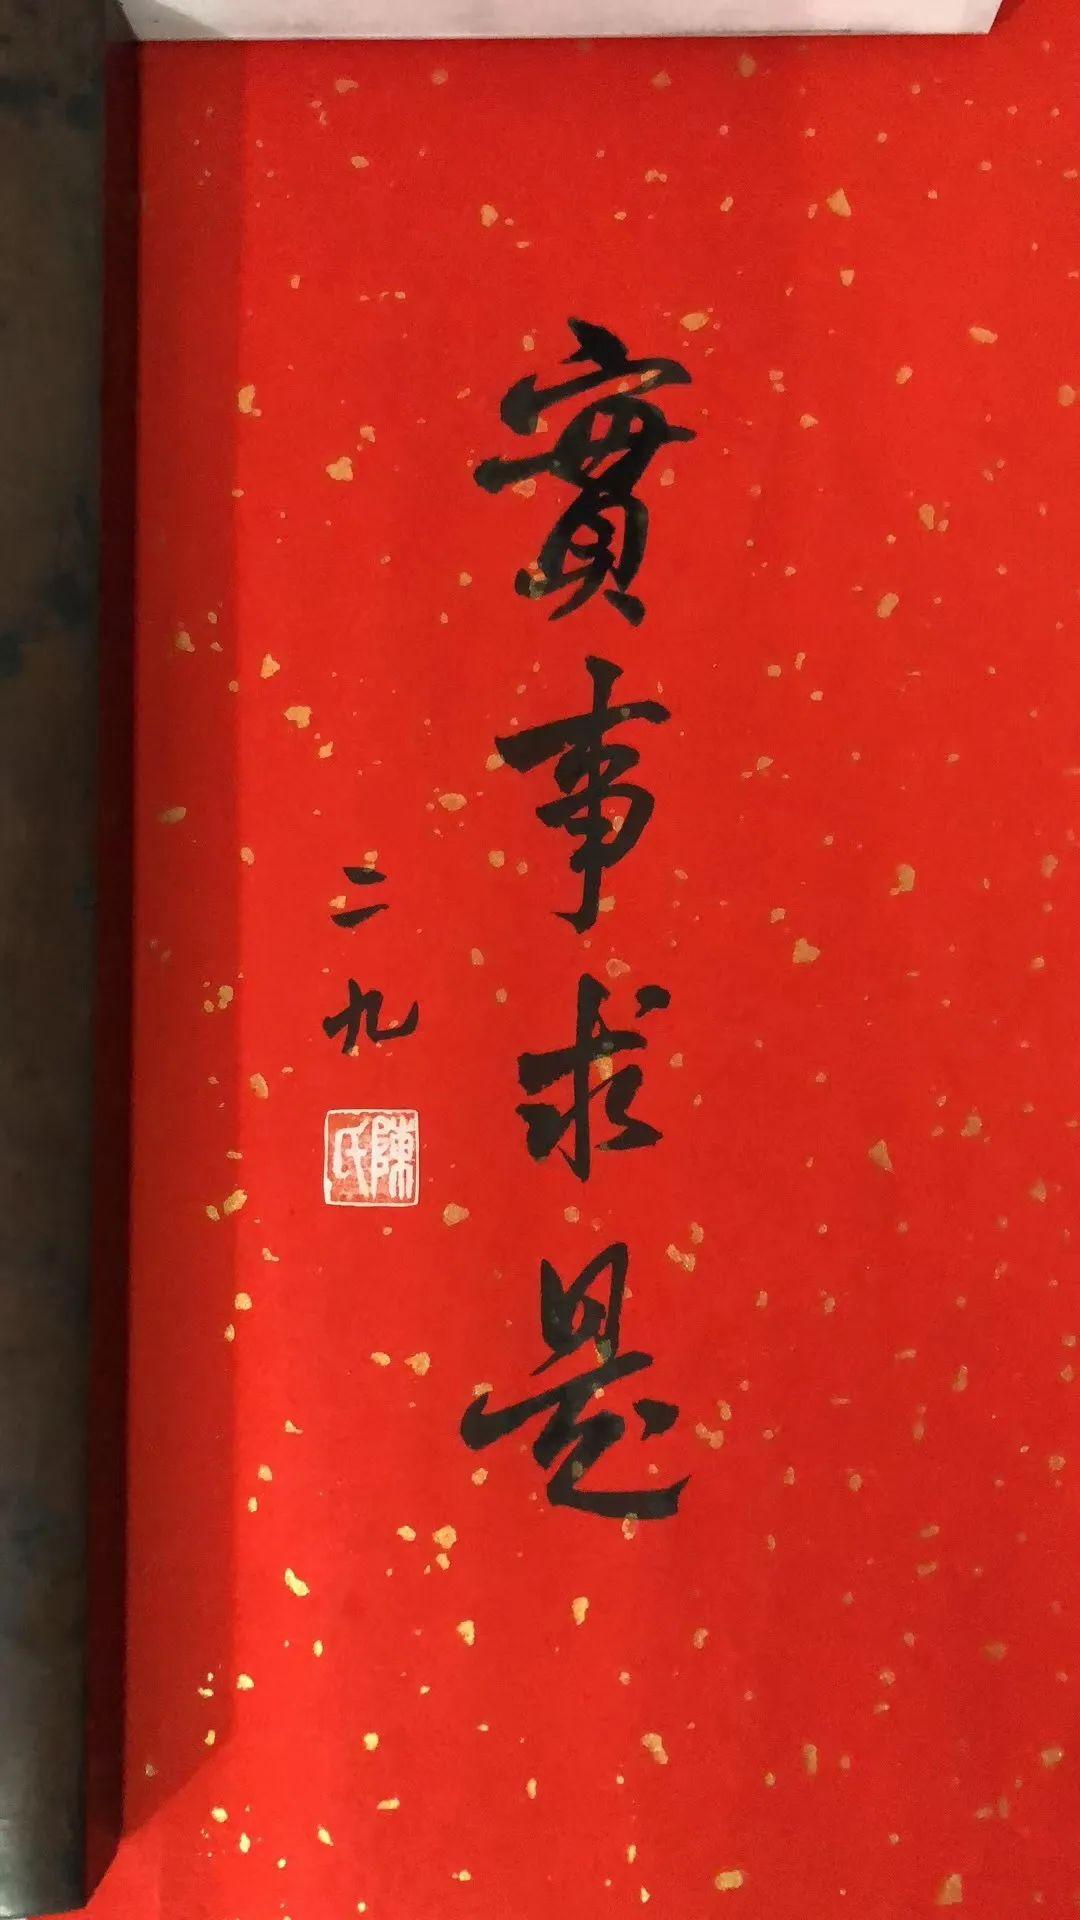 實事求是
二九
陳氏